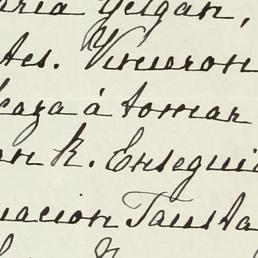 aria Yelgan,
tes. Vinieron
caza á tomar
on K. Ensegui
uacion Tausta